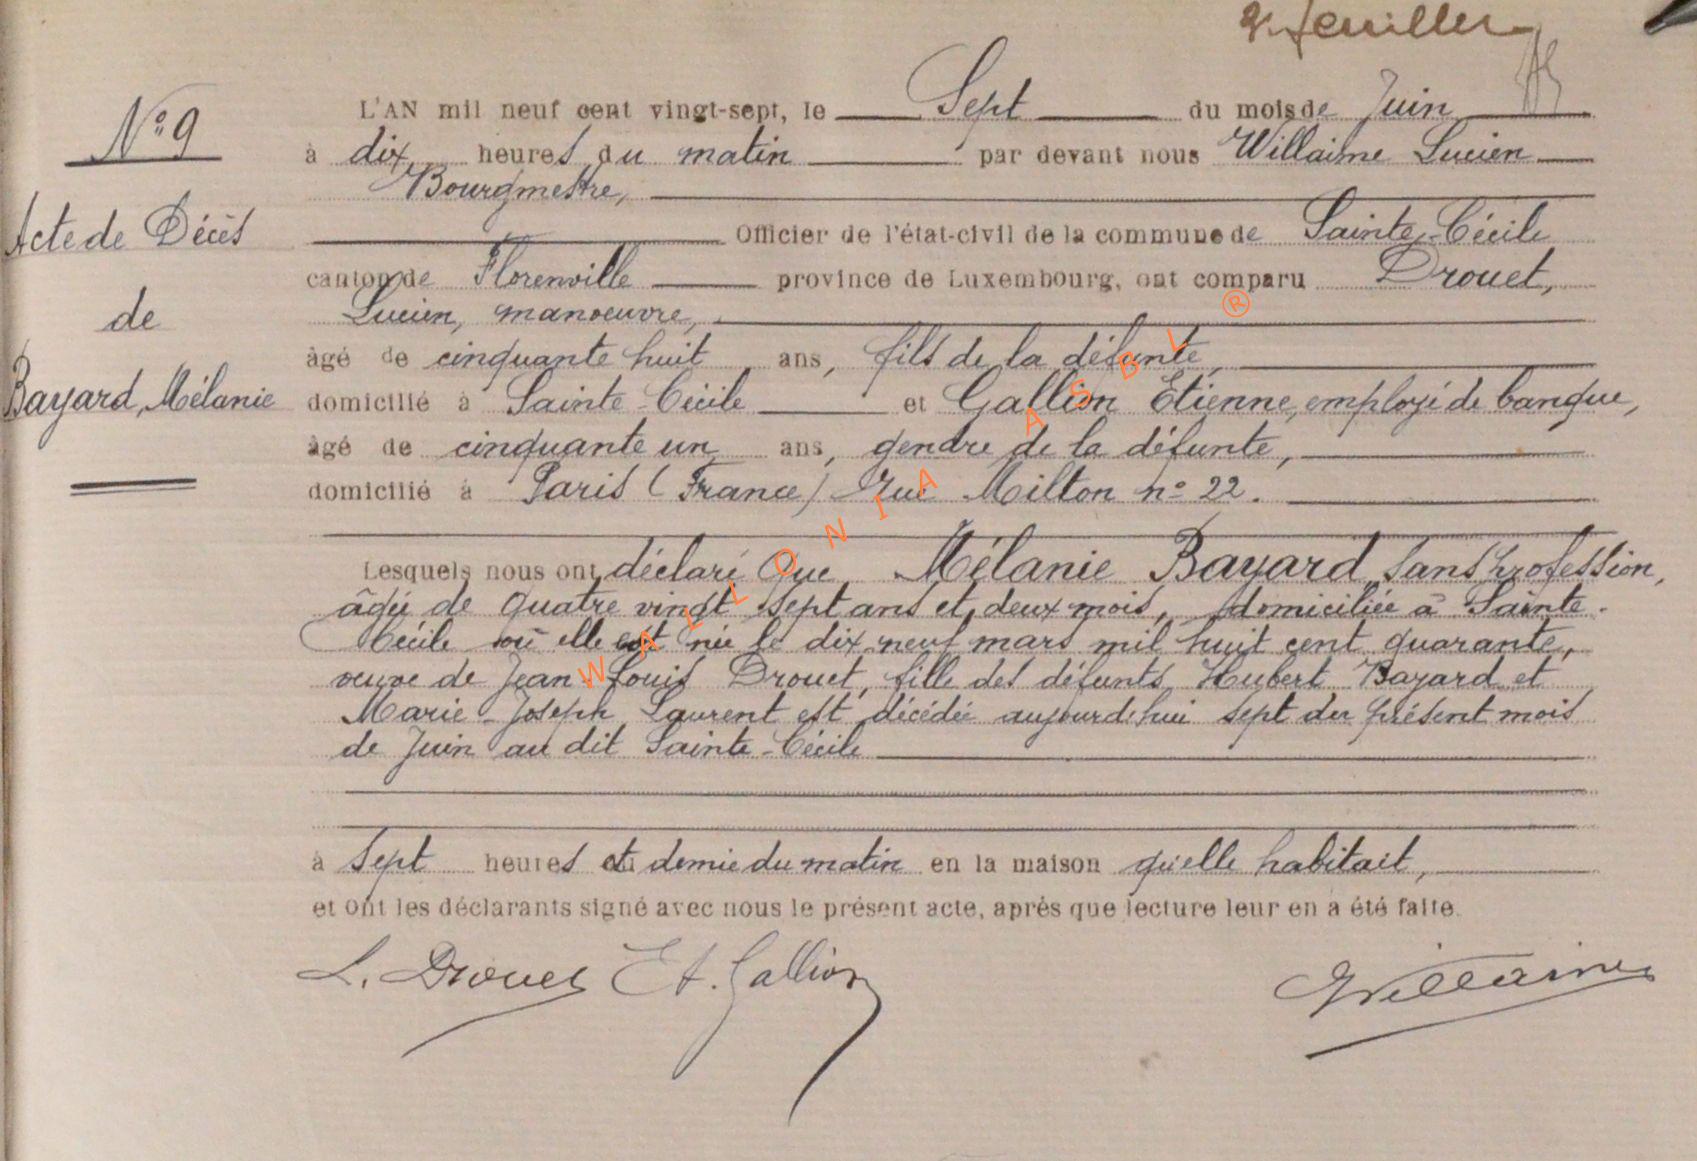 N° 9
Acte de Décès
de
Bayard, Mélanie
L'AN mil neuf cent vingt-sept, le Sept du mois de Juin
à dix heures du matin par devant nous Willaime Lucien
Bourgmestre,
Officier de l'état-civil de la commune de Sainte-Cécile
canton de Florenville province de Luxembourg, ont comparu Drouet,
Lucien, manoeuvre,
âgé de cinquante huit ans, fils de la défunte,
domicilié à Sainte-Cécile et Gallion Etienne, employé de banque,
âgé de cinquante un ans, gendre de la défunte,
domicilié à Paris (France) Rue Milton n° 22.
Lesquels nous ont déclaré que Mélanie Bayard, sans profession,
âgée de quatre vingt sept ans et deux mois, domiciliée à Sainte-
Cécile où elle est née le dix neuf mars mil huit cent quarante,
veuve de Jean-Louis Drouet, fille des défunts Hubert Bayard et
Marie-Joseph Laurent est décédée aujourd'hui sept du présent mois
de Juin au dit Sainte-Cécile
à sept heures et demie du matin en la maison qu'elle habitait,
et ont les déclarants signé avec nous le présent acte, après que lecture leur en a été faite.
L. Drouet Et. Gallion Willaime
WALLONIA ASBL ®